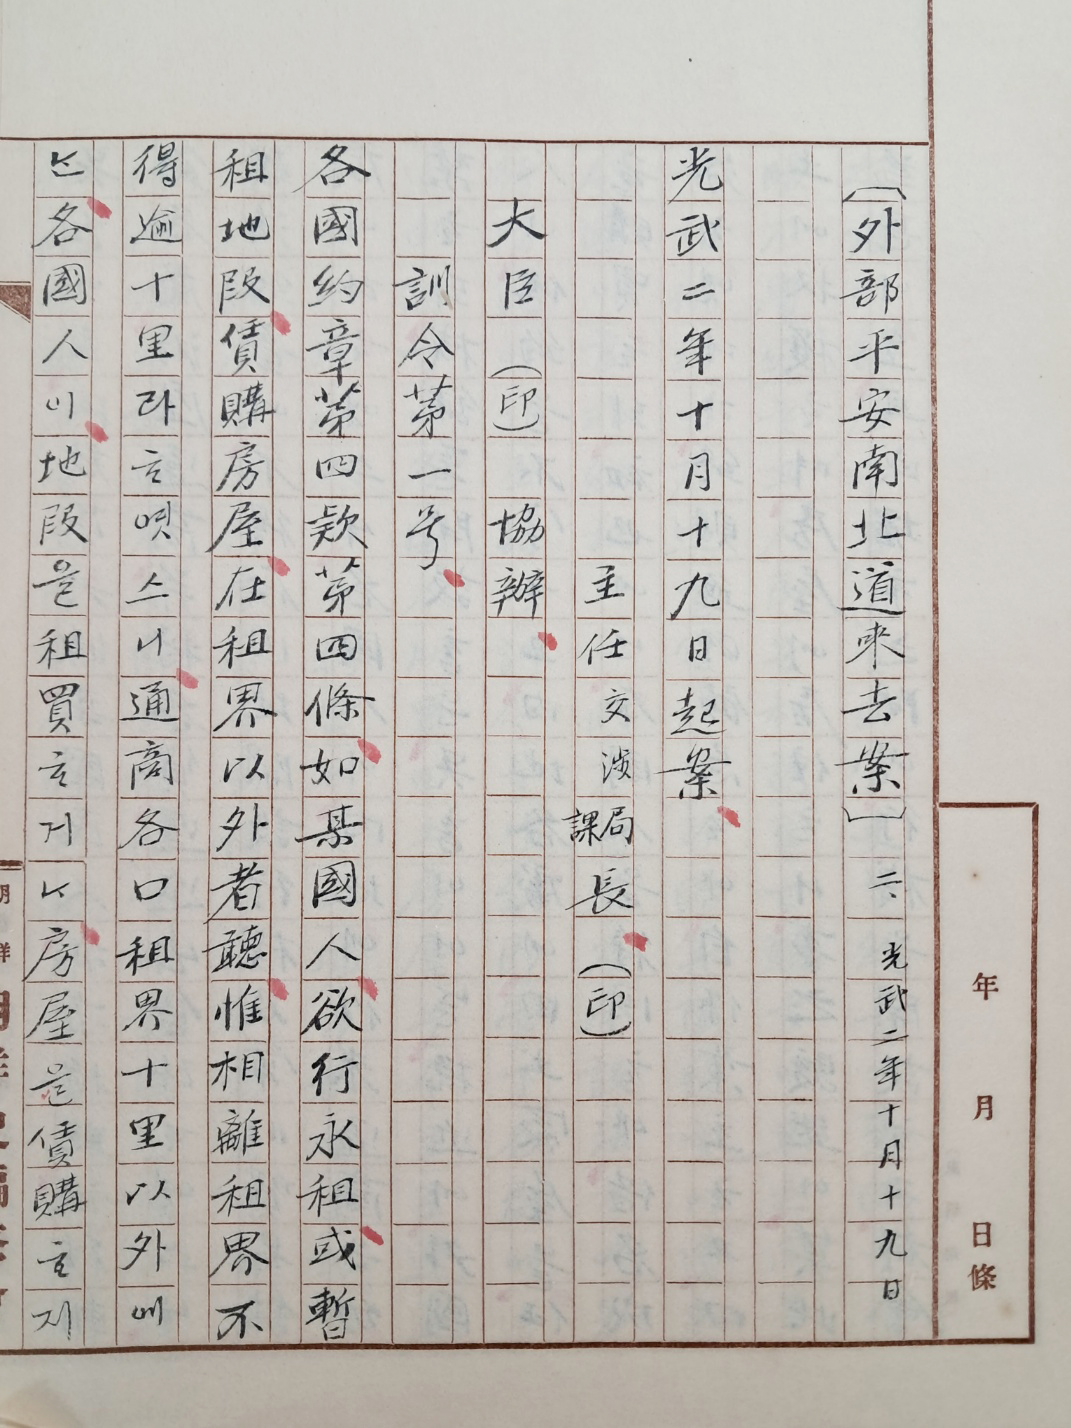 年　月　日條
〔外部平安南北道来去案〕二、光武二年十月十九日
光武二年十月十九日起案
主任交涉局課長（印）
大臣（印）協辦
訓令第一号
各國約章第四款第四條如某國人欲行永租或暫
租地段賃購房屋在租界以外者聽惟相離租界不
得逾十里라ᄒᆞ엿스니通商各口租界十里以外에
ᄂᆞᆫ各國人이地段을租買ᄒᆞ거ᄂᆞ房屋을賃購ᄒᆞ지